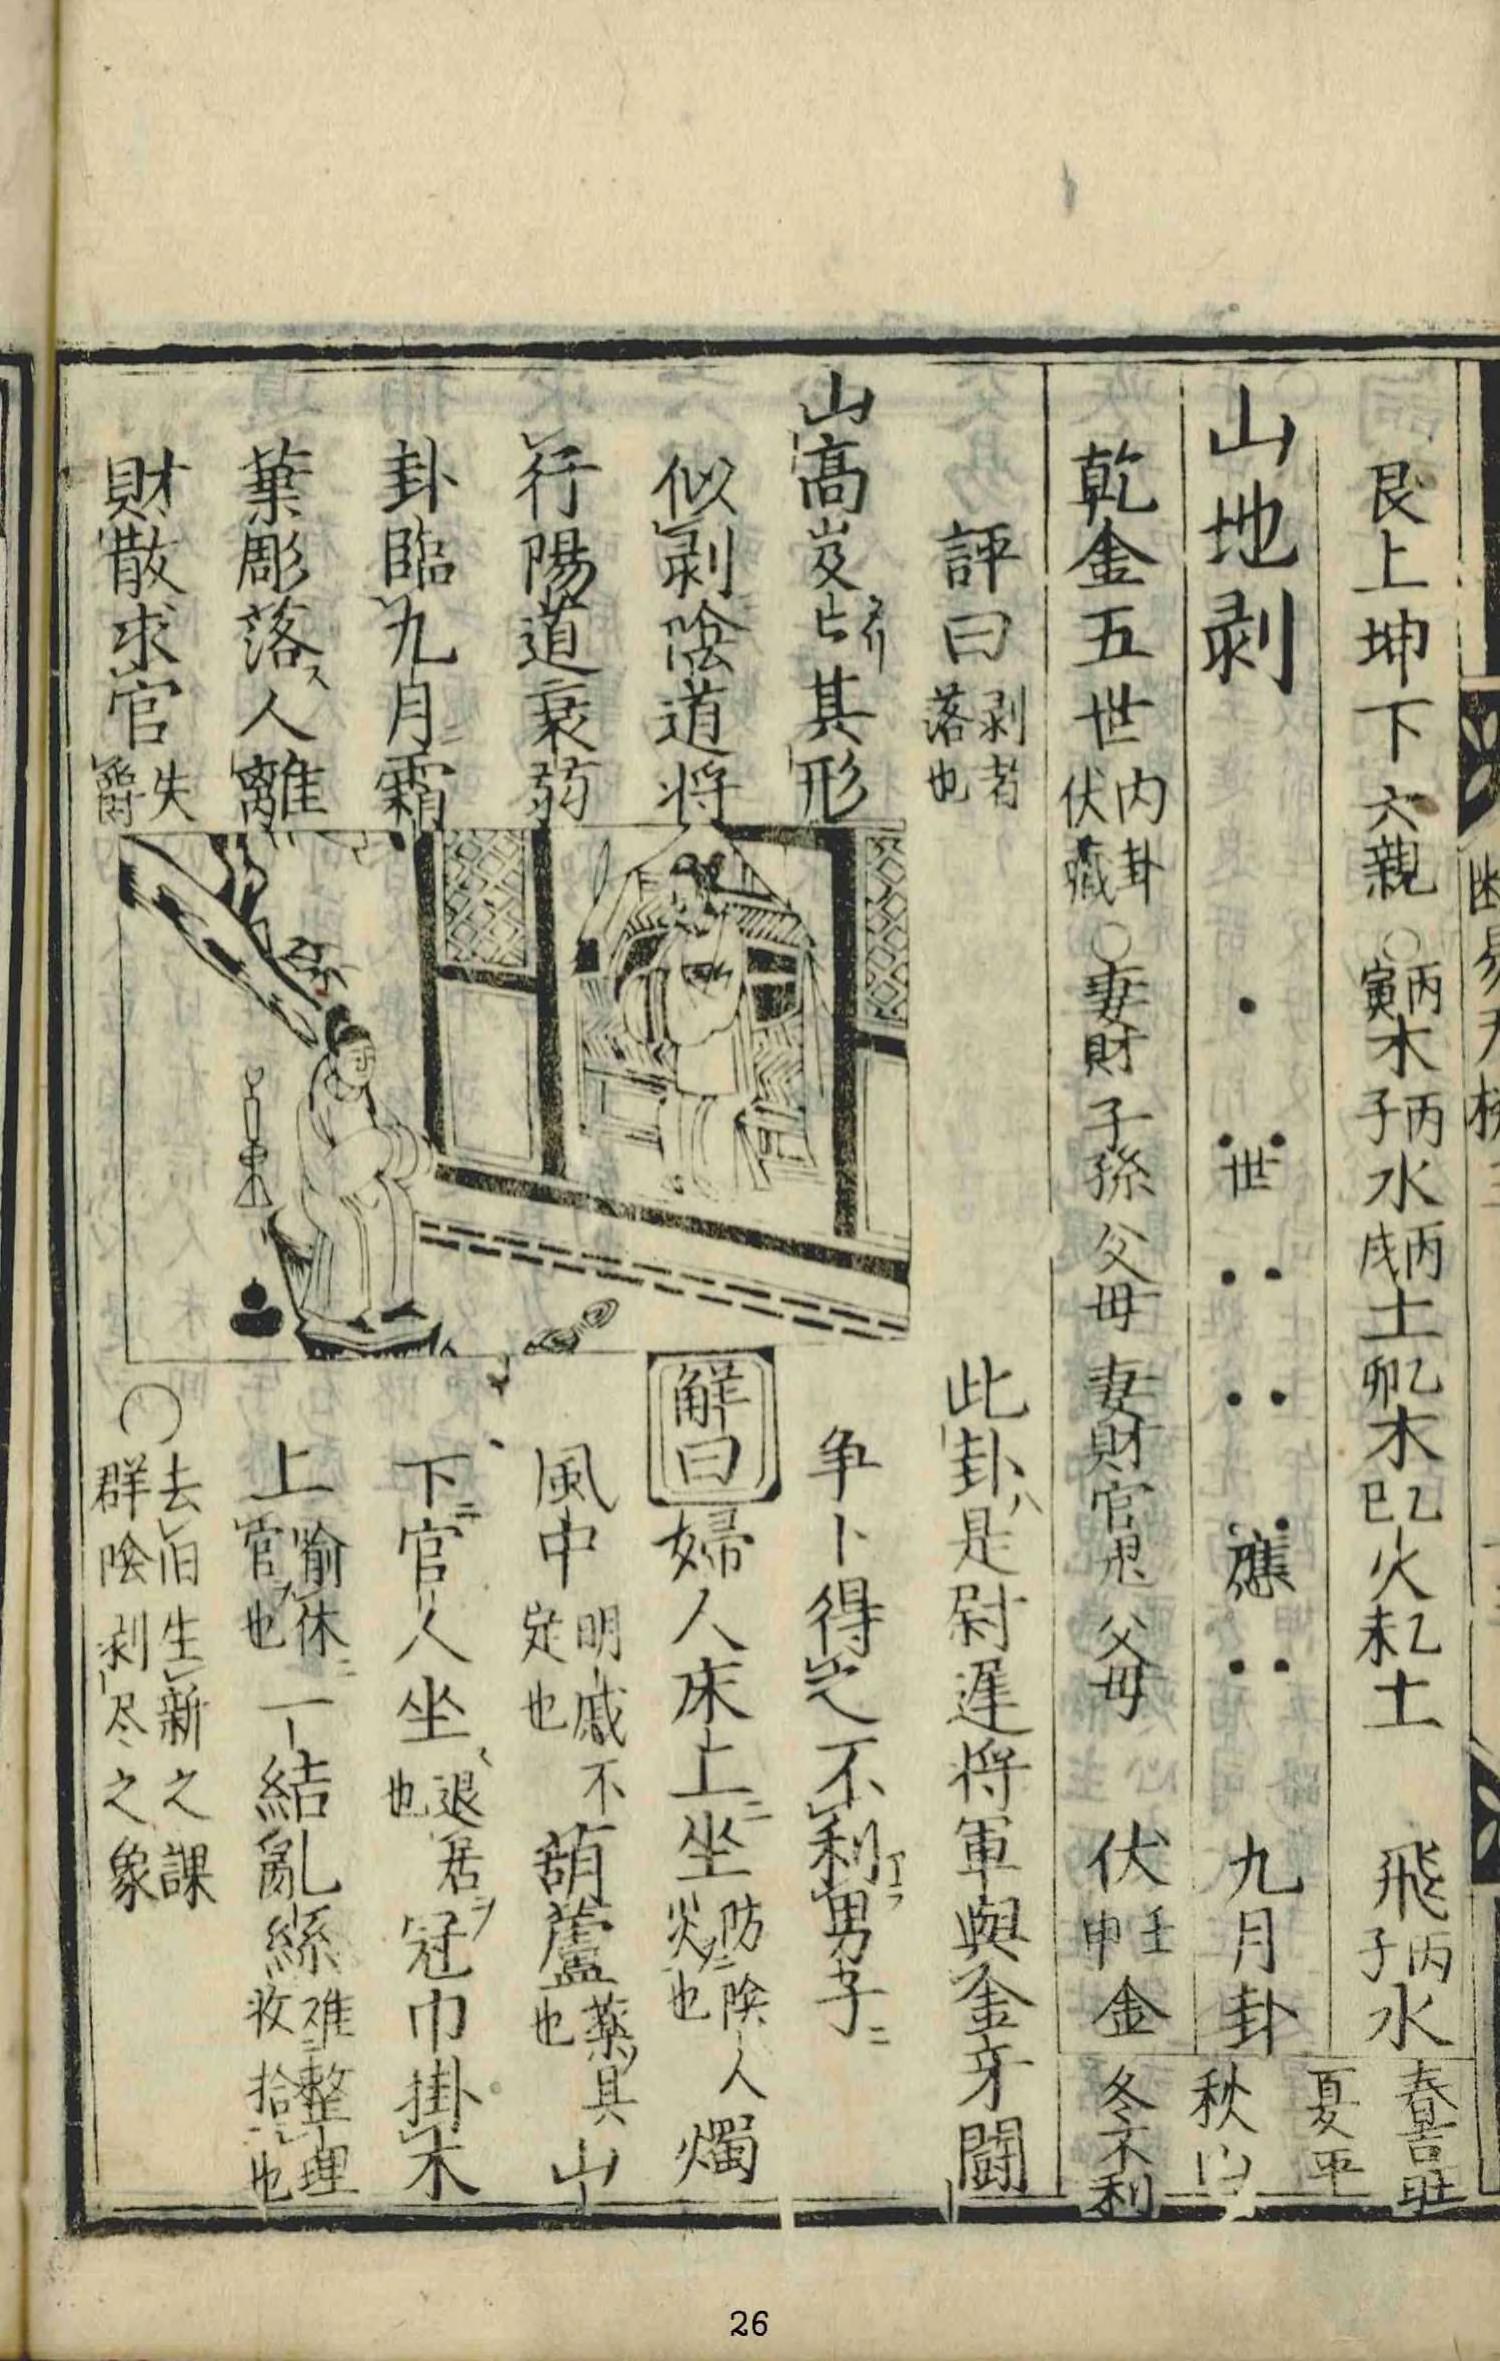 艮上坤下六親○丙寅木丙子水丙戌土乙卯木乙巳火乙未土 飛丙子水
春吉旺
夏平
山地剥 世 應 九月卦
秋凶
乾金五世内卦伏藏○妻財子孫父母妻財官鬼父母 伏壬申金
冬不利
評曰剥者落也
山高岌𡵆其形
似剥陰道将
行陽道衰弱
卦臨九月霜
葉彫落ス人離
財散求官失爵
此卦ハ是尉遲将軍與金牙闘
争卜得之不利男子ニ
解曰婦人床上ニ坐防陰人災也燭
風中明滅不定也葫蘆薬具也山
下ニ官人坐退居也冠巾掛木
上喻休官也一結亂絲难整理收拾也
○去旧生新之課
群陰剥尽之象
26